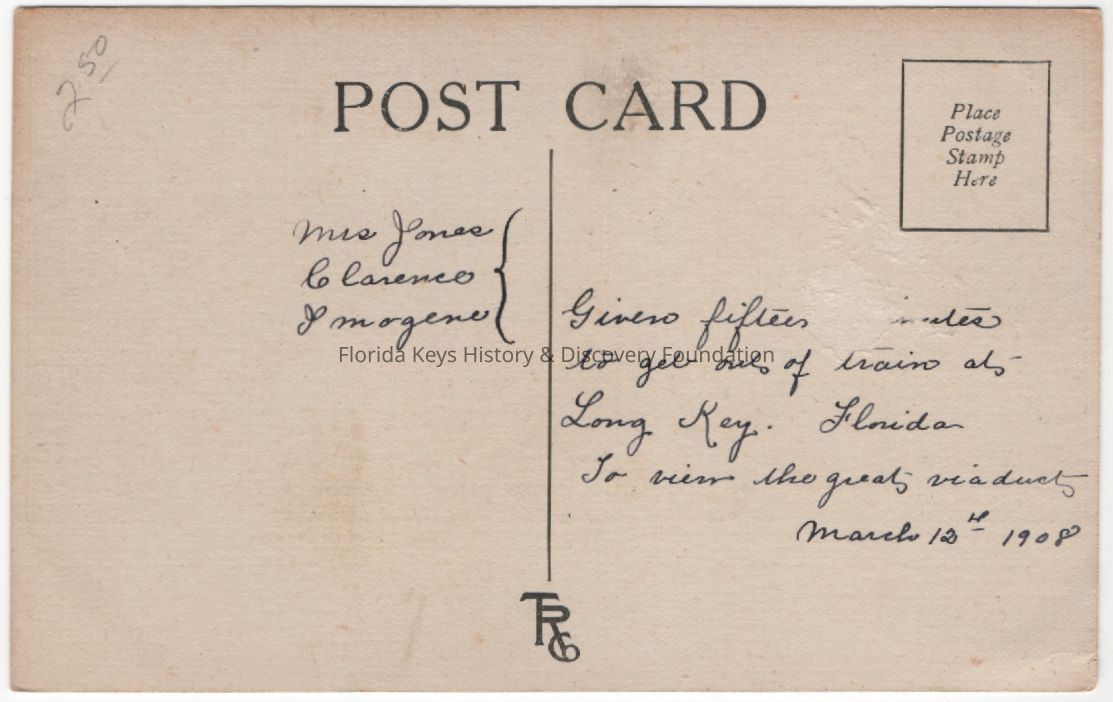 2 50
POST CARD
Place
Postage
Stamp
Here
Mrs Jones
Clarence
Imogene
Given fifteen
to get out of train at
Long Key. Florida
To view the great viaduct
March 12th 1908
Florida Keys History & Discovery Foundation
TRCo